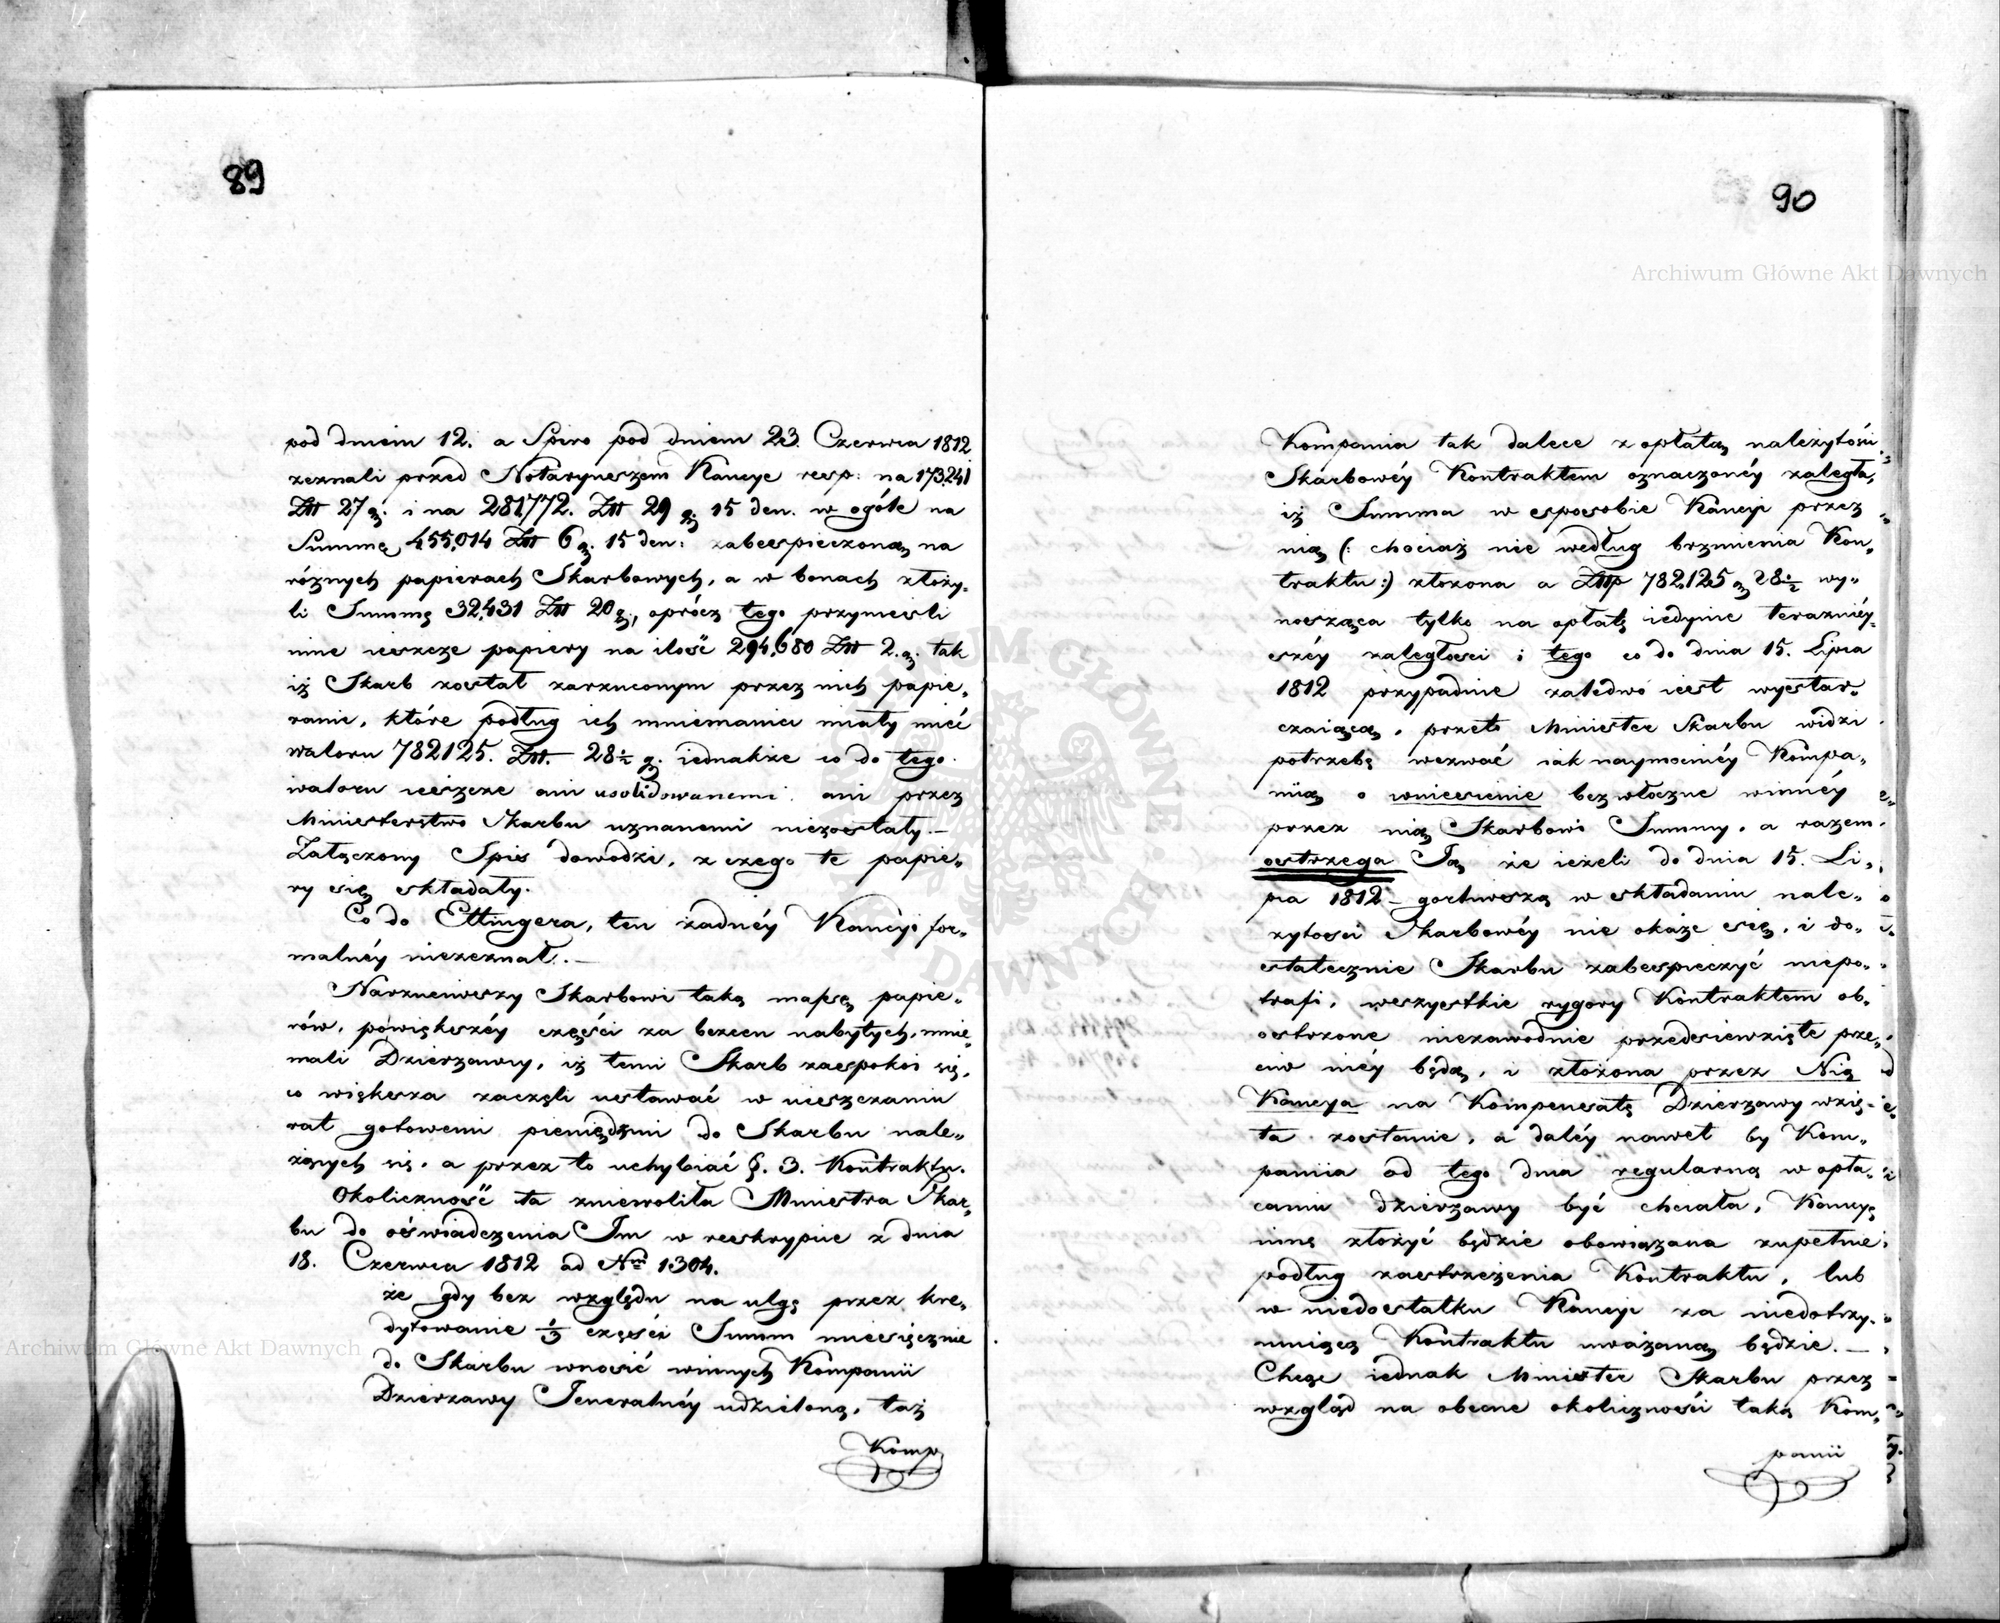 89
pod dniem 12. a Spiro pod dniem 23 Czerwca 1812
zeznali przed Notaryuszem Kaucye resp: na 173241
Złł 27 g. i na 281772. Złł 29 g. 15 den. w ogóle na
Summę 455,014 Złł 6 g. 15 den: zabespieczoną na
różnych papierach Skarbowych, a w bonach złoży-
li Summę 32,431 Złł 20 g., oprócz tego przynieśli
inne ieszcze papiery na ilość 294,680 Złł 2. g. tak
iż Skarb został zarzuconym przez nich papie-
rami, które podług ich mniemania miały mieć
waloru 782125. Złł. 28½ g. iednakże co do tego
waloru ieszcze ani usolidowanemi ani przez
Ministerstwo Skarbu uznanemi niezostały.—
Załączony Spis dowodzi, z czego te papie-
ry się składały.
Co do Ettingera, ten żadnéy Kaucyi for-
malnéy niezeznał.—
Narzuciwszy Skarbowi taką massę papie-
rów, powiększéy części za bezcen nabytych, mnie-
mali Dzierzawcy, iż temi Skarb zaspokoi się,
co większa zaczęli ustawać w uiszczaniu
rat gotowemi pieniędzmi do Skarbu nale-
żących się, a przez to uchybiać §. 3. Kontraktu.
Okoliczność ta zniewoliła Ministra Skar-
bu do oświadczenia Im w reskrypcie z dnia
18. Czerwca 1812 ad Nrm 1304.
że gdy bez względu na ulgę przez kre-
dytowanie ⅓ części Summ miesięcznie
do Skarbu wnosić winnych Kompanii
Dzierzawy Jeneralnéy udzieloną, taż
Komp
90
Archiwum Główne Akt Dawnych
Kompania tak dalece z opłatą należytości
Skarbowéy Kontraktem oznaczonéy zaległa,
iż Summa w sposobie Kaucyi przez
nią (: chociaż nie według brzmienia Kon-
traktu:) złożona a Złłp 782,125 g 28½ wy-
nosząca tylko na opłatę iedynie teraźniéy-
széy zaległości i tego co do dnia 15. Lipca
1812 przypadnie zaledwo iest wystar-
czaiącą, przeto Minister Skarbu widzi
potrzebę wezwać iak naymocniéy Kompa-
nią o wniesienie bezwłoczne winnéy
przez nią Skarbowi Summy, a razem
ostrzega Ją że ieżeli do dnia 15. Li-
pca 1812 – gorliwszą w składaniu nale-
żytości Skarbowéy nie okaże się, i do-
statecznie Skarbu zabespieczyć niepo-
trafi, wszystkie rygory Kontraktem ob-
ostrzone niezawodnie przedsiewzięte prze-
ciw niéy będą, i złożona przez Nią
Kaucya na Kompensatę Dzierzawy wzię-
ta zostanie, a daléy nawet by Kom-
pania od tego dnia regularną w opła-
caniu dzierzawy być chciała, Kaucyę
inną złożyć będzie obowiązana zupełnie
podług zastrzeżenia Kontraktu, lub
w niedostatku Kaucyi za niedotrzy-
muiącą Kontraktu uważaną będzie.—
Chcąc iednak Minister Skarbu przez
wzgląd na obecne okoliczności taką Kom-
panii
Archiwum Główne Akt Dawnych
ARCHIWUM GŁÓWNE AKT DAWNYCH